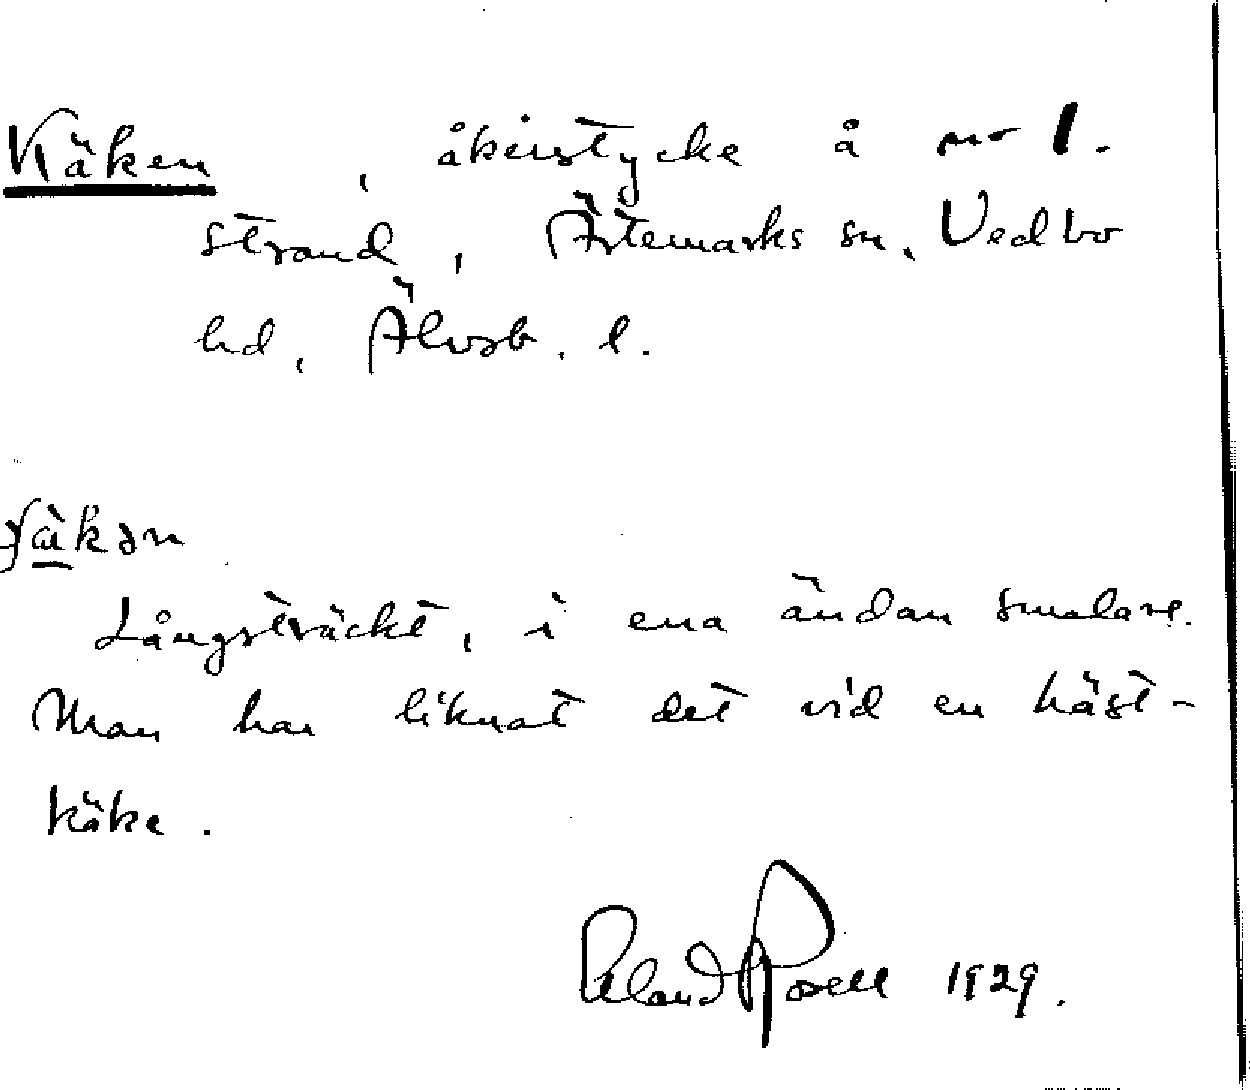 Käken, åkerstycke å nr 1.
Strand, Ärtemarks sn, Vedbo
hd, Älvsb. l.
ɟäkən
Långsträckt, i ena ändan smalare.
Man har liknat det vid en häst-
käke.
Rosell 1929.